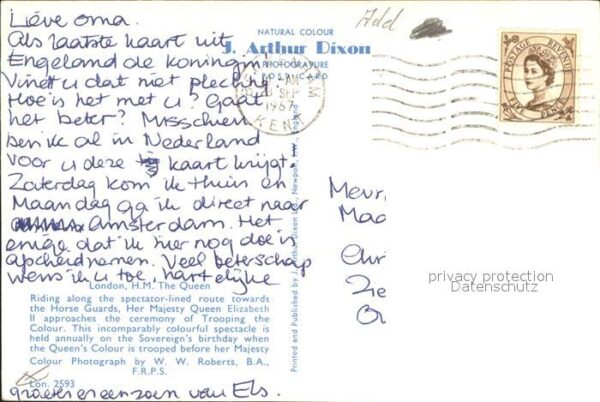 Lieve oma.
Als laatste kaart uit
Engeland de koningin
Vindt u dat niet plechtig
Hoe is het met u? Gaat
het beter? Misschien
ben ik al in Nederland
voor u deze kaart krijgt.
Zaterdag kom ik thuis en
Maandag ga ik direct naar
Amsterdam. Het
enige dat ik hier nog doe is
afscheidnemen. Veel beterschap
wens ik u toe, hartelijke
groeten en een zoen van Els.
London, H.M. The Queen
Riding along the spectator-lined route towards
the Horse Guards, Her Majesty Queen Elizabeth
II approaches the ceremony of Trooping the
Colour. This incomparably colourful spectacle is
held annually on the Sovereign's birthday when
the Queen's Colour is trooped before her Majesty
Colour Photograph by W. W. Roberts, B.A.,
F.R.P.S.
Lon. 2593
NATURAL COLOUR
J. Arthur Dixon
PHOTOGRAVURE
POSTCARD
SEP
1967
KENT
Printed and Published by J. Arthur Dixon Ltd., Newport, I.W., England
Add
POSTAGE REVENUE
FIVE PENCE
Mevr.
Maa
Chr
Zie
privacy protection
Datenschutz